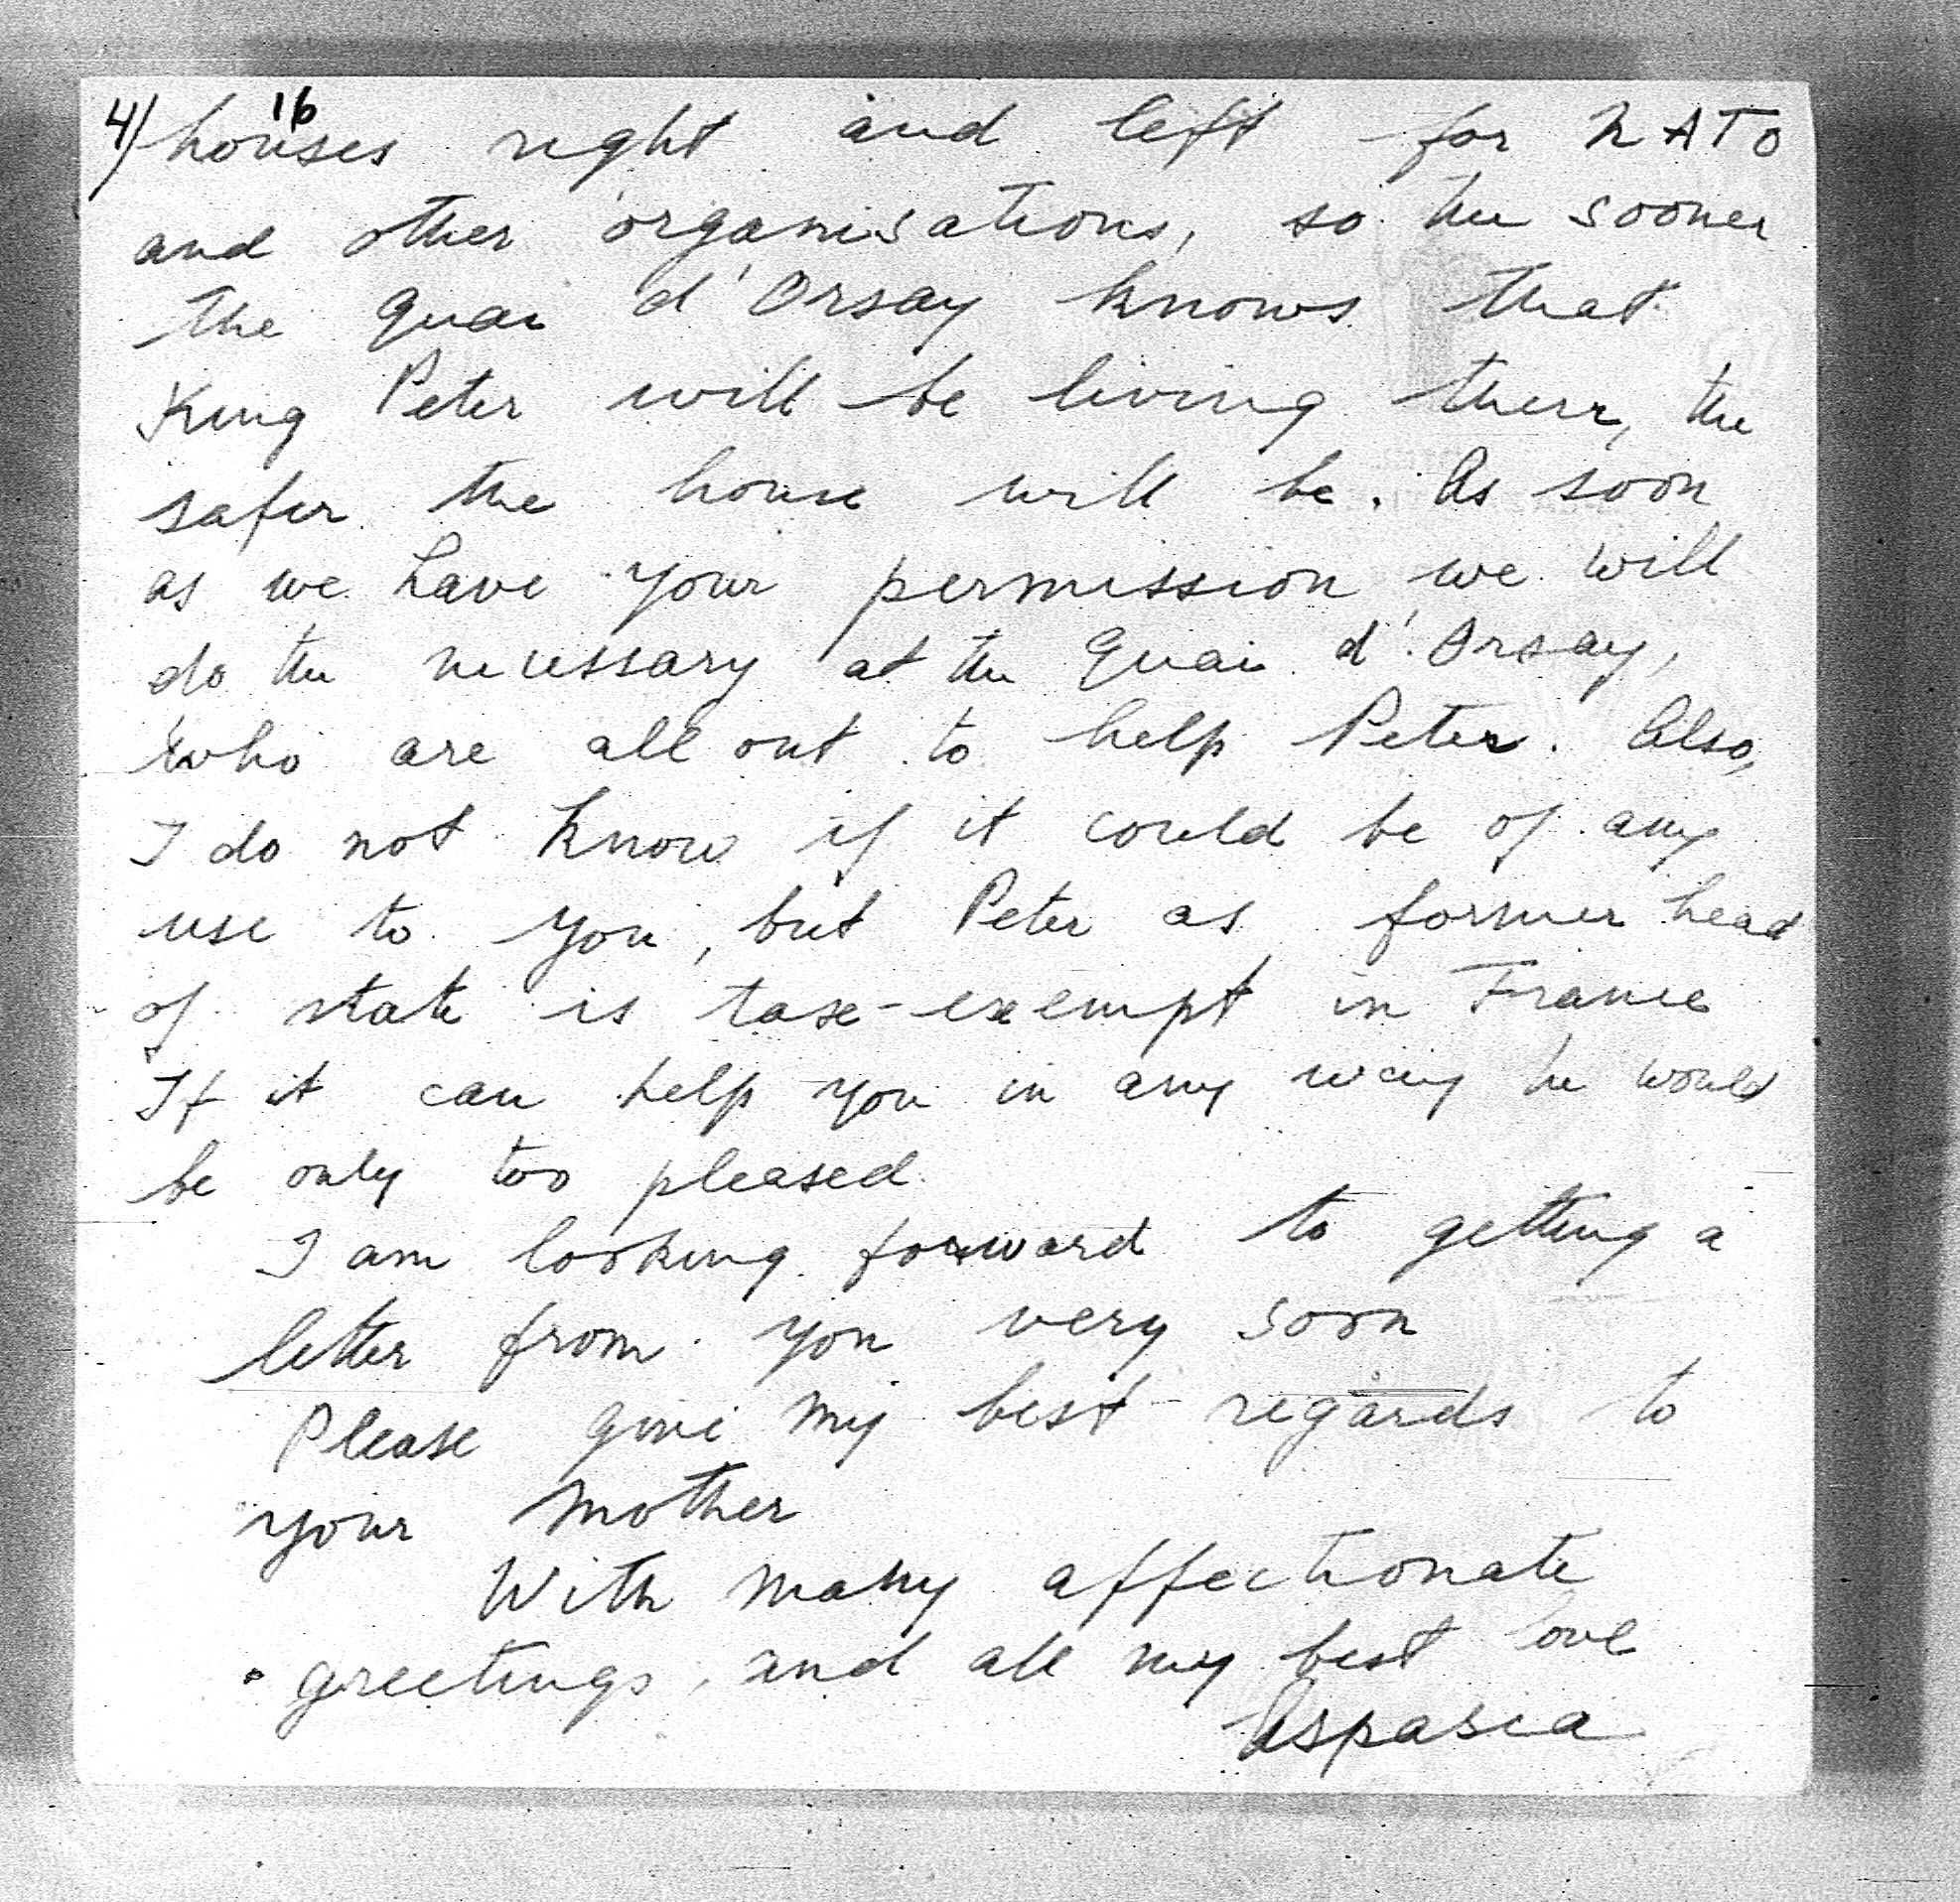 16
4) houses right and left for NATO
and other organisations, so the sooner
the Quai d'Orsay knows that
King Peter will be living there, the
safer the house will be. As soon
as we have your permission we will
do the necessary at the Quai d'Orsay,
who are all out to help Peter. Also,
I do not know if it could be of any
use to you, but Peter as former head
of state is taxe-exempt in France
If it can help you in any way he would
be only too pleased.
I am looking forward to getting a
letter from you very soon
Please give my best regards to
your mother
With many affectionate
greetings, and all my best love
Aspasia